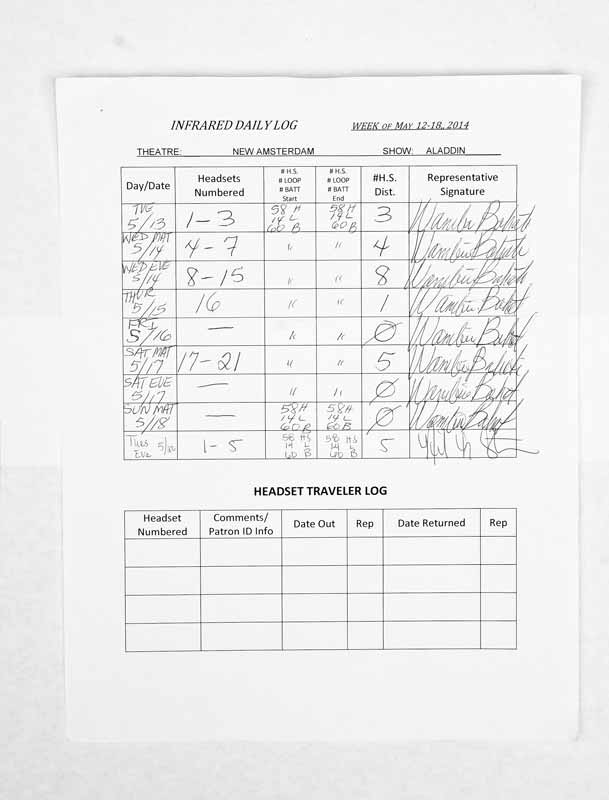 INFRARED DAILY LOG WEEK OF MAY 12-18, 2014
THEATRE: NEW AMSTERDAM SHOW: ALADDIN
Day/Date Headsets Numbered # H.S. # LOOP # BATT Start # H.S. # LOOP # BATT End #H.S. Dist. Representative Signature
TUE 5/13 1-3 58 H 14 L 60 B 58 H 14 L 60 B 3
WED MAT 5/14 4-7 " " 4
WED EVE 5/14 8-15 " " 8
THUR 5/15 16 " " 1
FRI 5/16 — " " Ø
SAT MAT 5/17 17-21 " " 5
SAT EVE 5/17 — " " Ø
SUN MAT 5/18 — 58H 14L 60B 58H 14L 60B Ø
Tues Eve 1-5 58 HS 14 L 60 B 58 HS 14 L 60 B 5
HEADSET TRAVELER LOG
Headset Numbered Comments/ Patron ID Info Date Out Rep Date Returned Rep